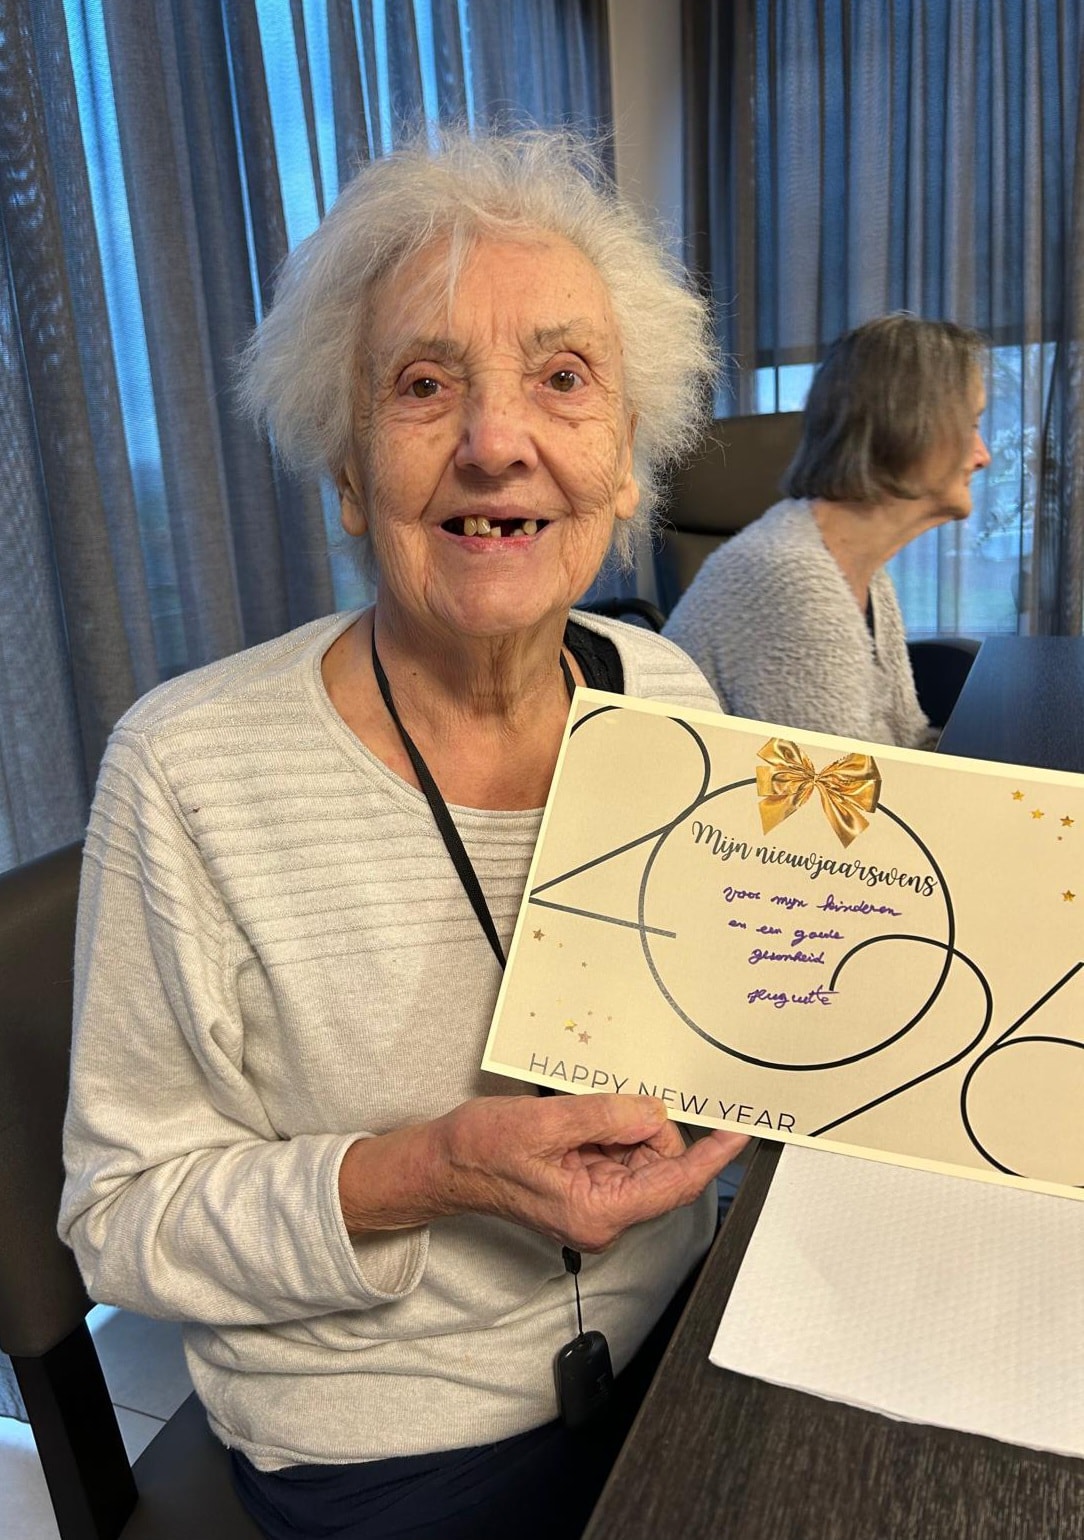 2026
Mijn nieuwjaarswens
Voor mijn kinderen
en een goede
gesonheid
Huguette
HAPPY NEW YEAR